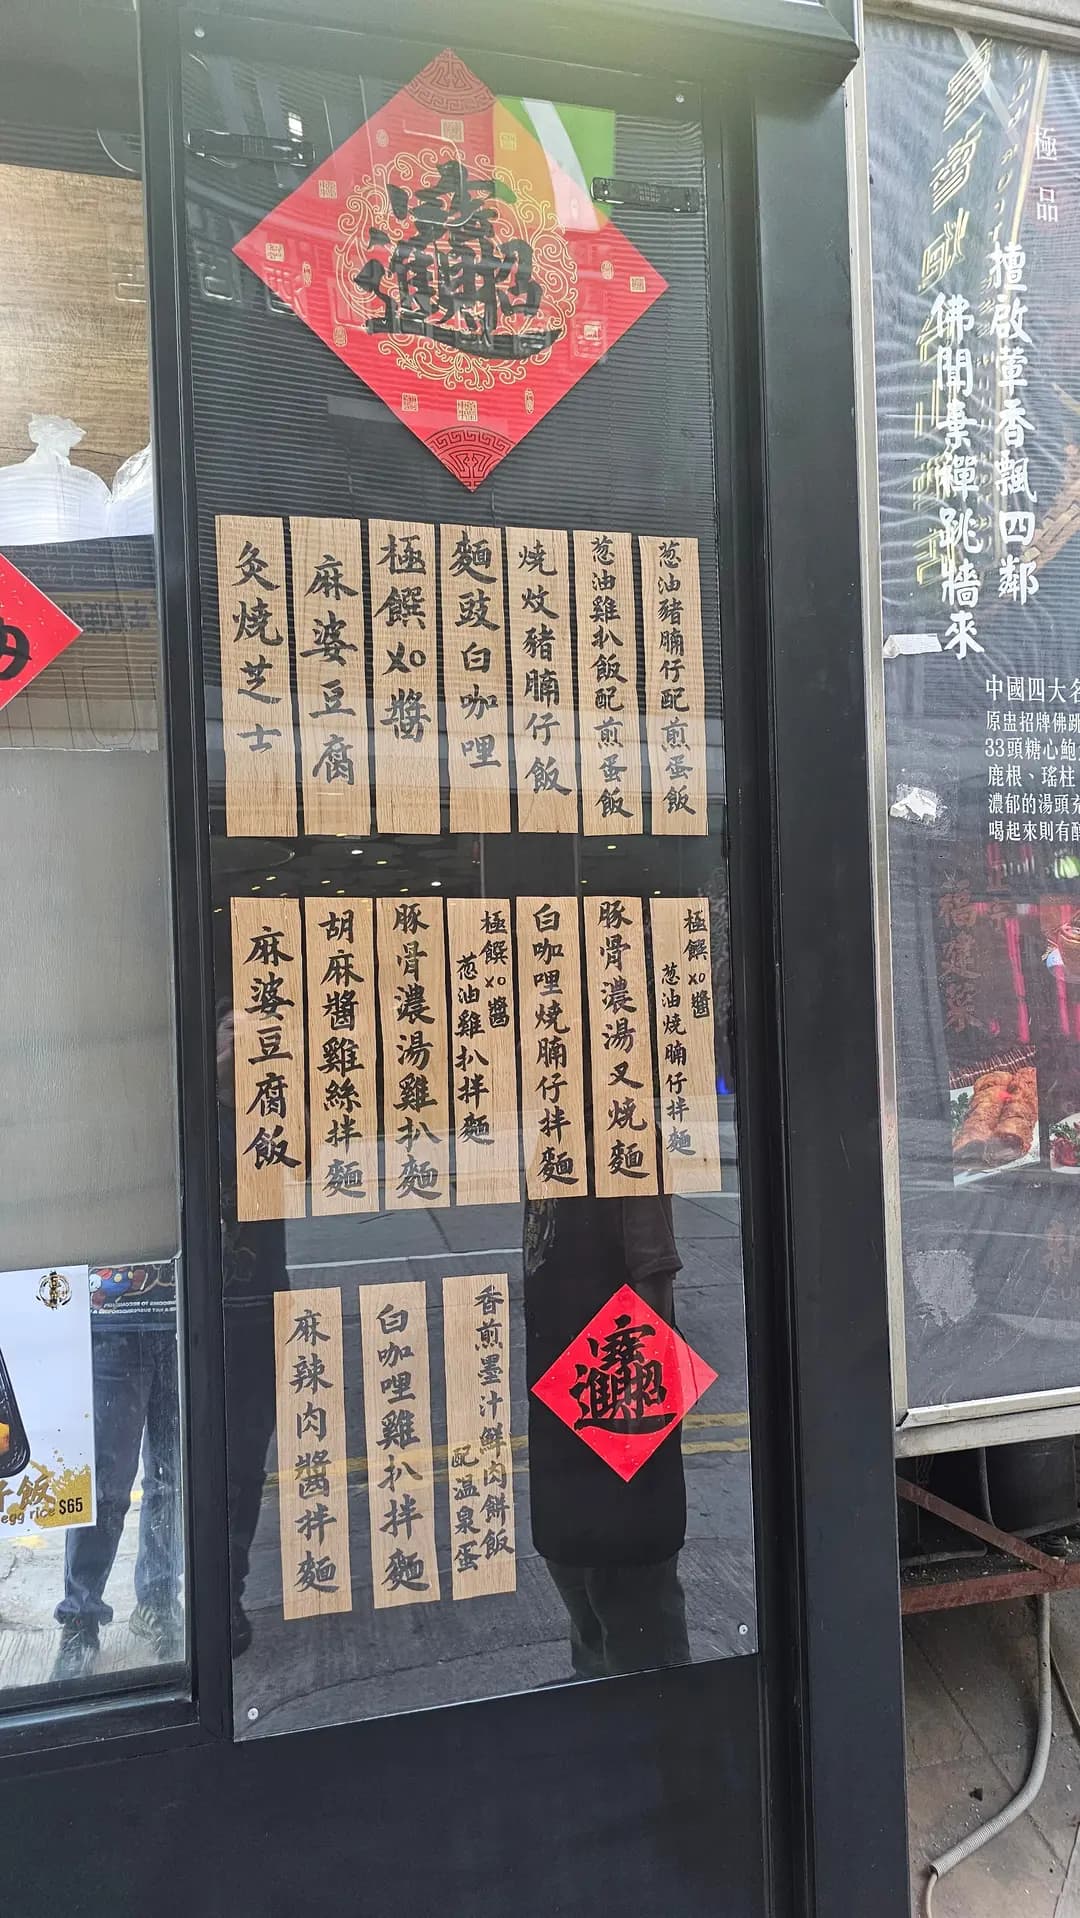 招財進寶
葱油豬腩仔配煎蛋飯
葱油雞扒飯配煎蛋飯
燒炆豬腩仔飯
麵豉白咖哩
極饌XO醬
麻婆豆腐
灸燒芝士
極饌XO醬
葱油燒腩仔拌麵
豚骨濃湯叉燒麵
白咖哩燒腩仔拌麵
極饌XO醬
葱油雞扒拌麵
豚骨濃湯雞扒麵
胡麻醬雞絲拌麵
麻婆豆腐飯
香煎墨汁鮮肉餅飯
配溫泉蛋
白咖哩雞扒拌麵
麻辣肉醬拌麵
招財進寶
飯
egg rice $65
極品
壇啟葷香飄四鄰
佛聞棄禪跳牆來
中國四大名
原盅招牌佛跳
33頭糖心鮑
鹿根、瑤柱
濃郁的湯頭
喝起來則有醇
福建菜